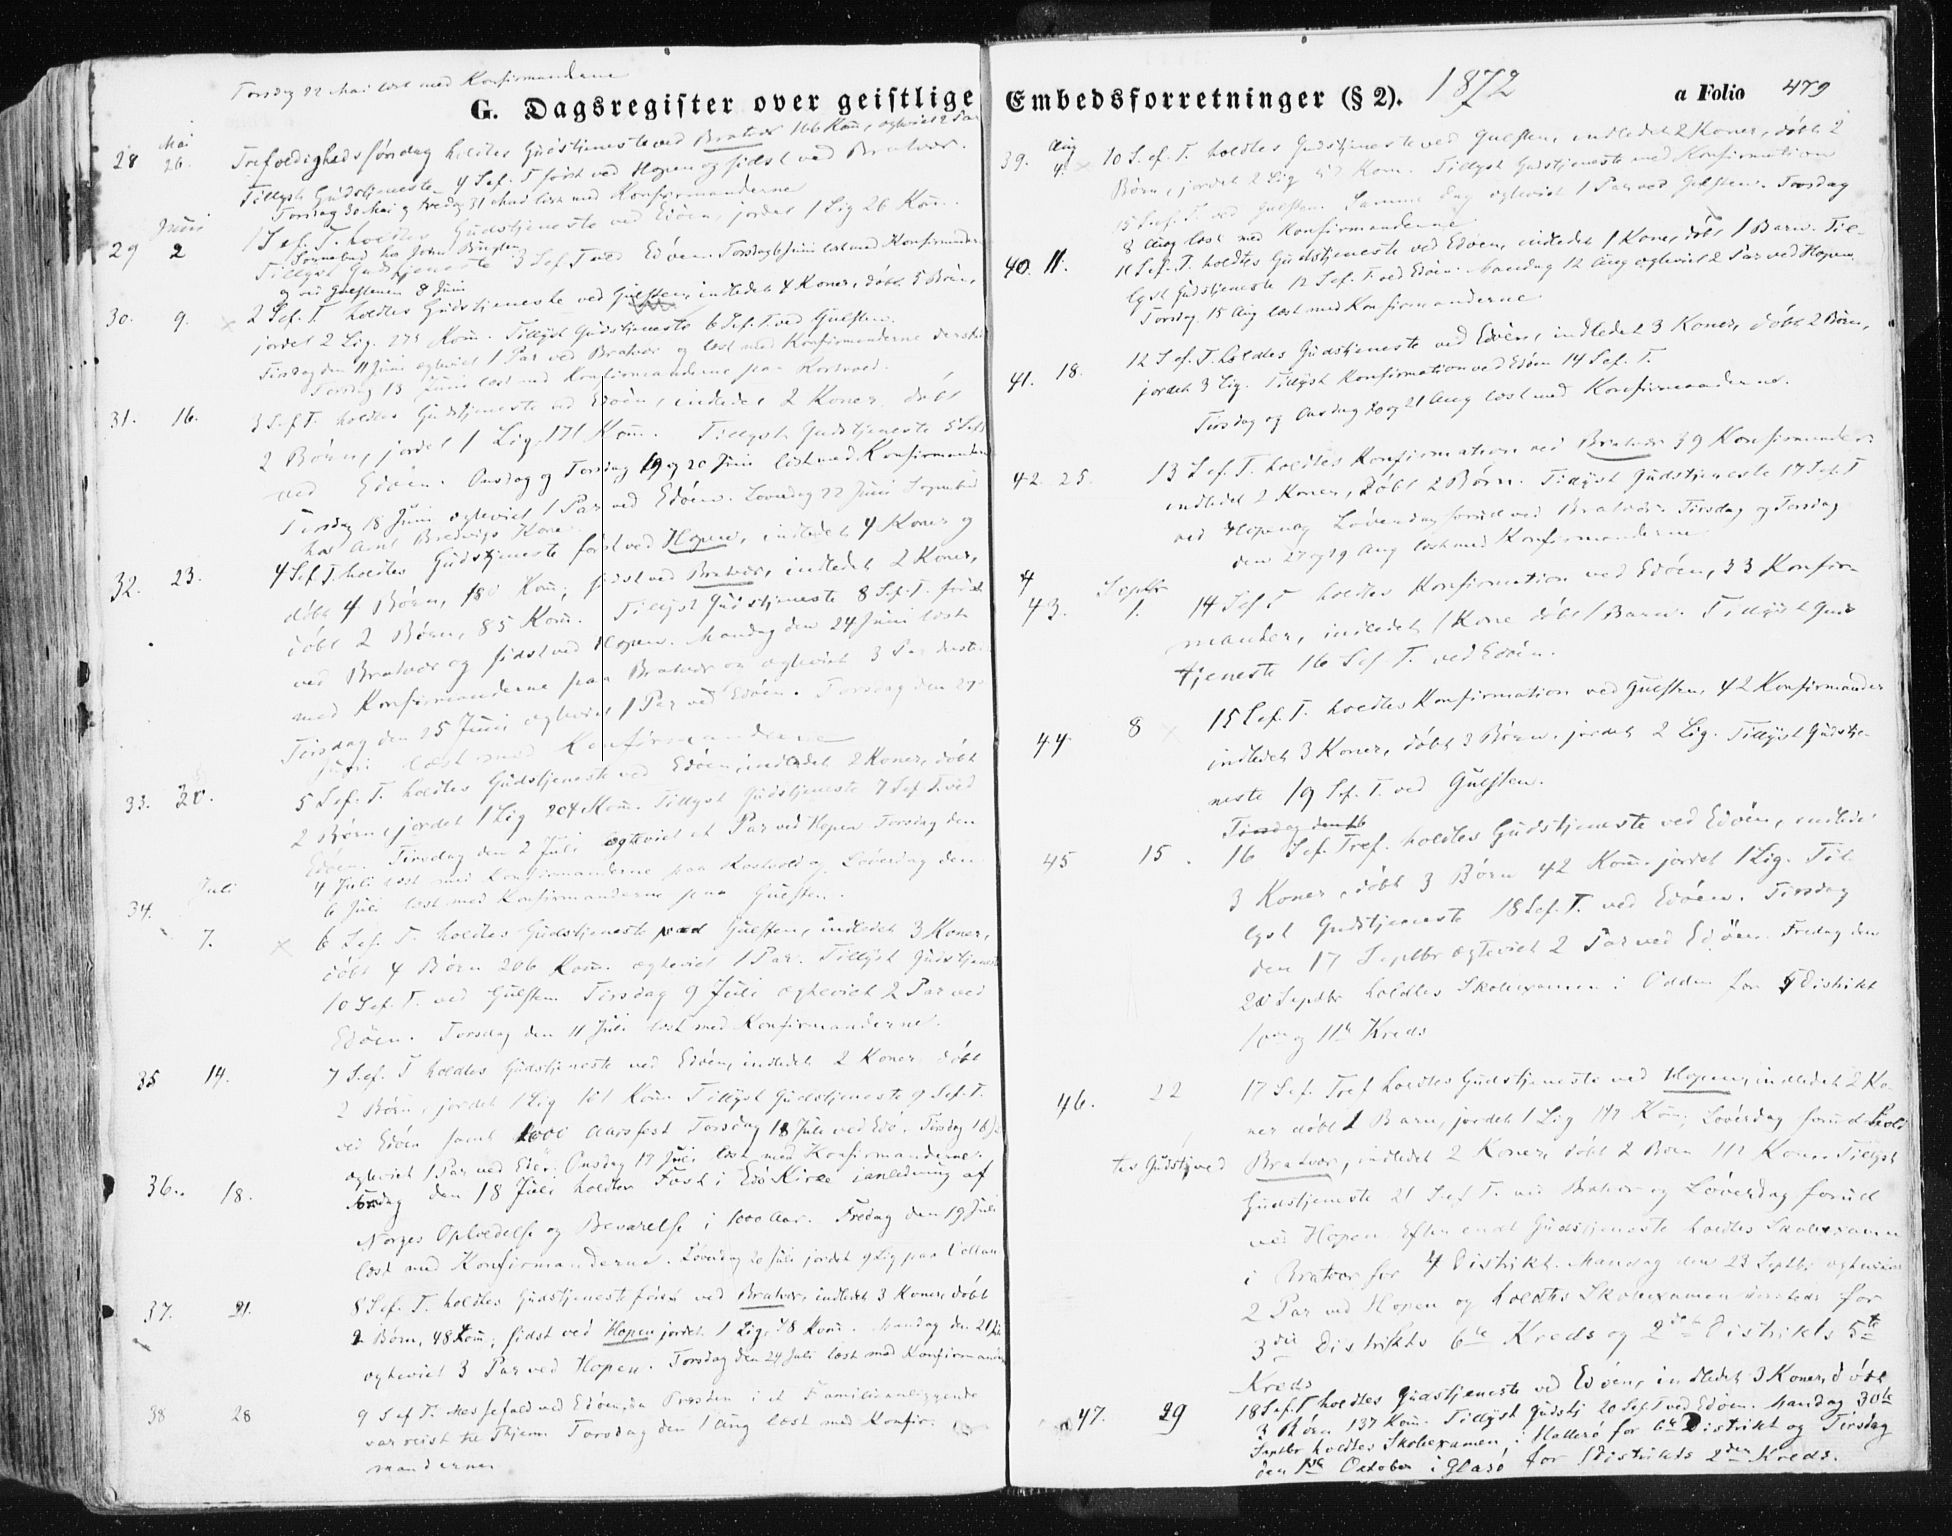 Torsdag 22 Mai læst med Konfirmanderne
G. Dagsregister over geistlige
28 Mai 26. Trefoldighedssøndag holdtes Gudstjeneste ved Bratvær 166 Kom, egteviet 2 Par
Tillyst Gudstjeneste 4 S.ef.T først ved Hopen og sidst ved Bratvær.
Torsdag 30 Mai og Fredag 31 Mai læst med Konfirmanderne
29 Juni 2 1 S.ef.T. holdtes Gudstjeneste ved Edøen, jordet 1 Lig 26 Kom.
Sognebud hos John
Tillyst Gudstjeneste 3 S.ef.T ved Edøen. Torsdag 6 Juni læst med Konfirmander
og ved Gulsten 8 Juni
30. 9. 2 S.ef.T. holdtes Gudstjeneste ved Gulsten, indledet 4 Koner, døbt 5 Børn,
jordet 2 Lig. 275 Kom. Tillyst Gudstjeneste 6 S.ef.T. ved Gulsten.
Tirsdag den 11 Juni egteviet 1 Par ved Bratvær og læst med Konfirmanderne dersted
Torsdag 13 Juni læst med Konfirmanderne paa
31. 16. 3 S.ef.T. holdtes Gudstjeneste ved Edøen, indledet 2 Koner, døbt
2 Børn, jordet 1 Lig, 171 Kom. Tillyst Gudstjeneste 5 S.ef.T
ved Edøen. Onsdag og Torsdag 19 og 20 Juni læst med Konfirmander
Tirsdag 18 Juni egteviet 1 Par ved Edøen. Løverdag 22 Juni Sognebud
hos Kone
32. 23. 4 S.ef.T. holdtes Gudstjeneste først ved Hopen, indledet 4 Koner og
døbt 4 Børn, 180 Kom; sidst ved Bratvær, indledet 2 Koner,
døbt 2 Børn, 85 Kom. Tillyst Gudstjeneste 8 S.ef.T. først
ved Bratvær og sidst ved Hopen. Mandag den 24 Juni læst
med Konfirmanderne paa Bratvær og egteviet 3 Par dersted
Tirsdag den 25 Juni egteviet 1 Par ved Edøen. Torsdag den 27
Juni læst med Konfirmanderne
33. 30. 5 S.ef.T. holdtes Gudstjeneste ved Edøen, indledet 2 Koner, døbt
2 Børn, jordet 1 Lig 204 Kom. Tillyst Gudstjeneste 7 S.ef.T. ved
Edøen. Tirsdag den 2 Juli egteviet et Par ved Hopen Torsdag den
4 Juli læst med Konfirmanderne paa og Løverdag den
Juli 6 Juli læst med Konfirmanderne paa Gulsten.
34. 7. 6 S.ef.T. holdtes Gudstjeneste ved Gulsten, indledet 3 Koner,
døbt 4 Børn 206 Kom. egteviet 1 Par. Tillyst Gudstjeneste
10 S.ef.T. ved Gulsten Tirsdag 9 Juli egteviet 2 Par ved
Edøen. Torsdag den 11 Juli læst med Konfirmanderne.
35 14. 7 S.ef.T holdtes Gudstjeneste ved Edøen, indledet 2 Koner, døbt
2 Børn, jordet 1 Lig 101 Kom Tillyst Gudstjeneste 9 S.ef.T.
ved Edøen samt 1000 Aarsfest Torsdag 18 Juli ved Edø. Tirsdag 16 Ju
egteviet 1 Par ved Edø. Onsdag 17 Juli læst med Konfirmanderne.
36. 18. Torsdag den 18 Juli holdtes Fest i Edø Kirke i anledning af
Norges Opholdelse og Bevarelse i 1000 Aar. Fredag den 19 Juli
læst med Konfirmanderne. Løverdag 20 Juli jordet 9 Lig paa
37. 21. 8 S.ef.T. holdtes Gudstjeneste først ved Bratvær, indledet 3 Koner, døbt
2 Børn, 48 Kom; sidst ved Hopen jordet 1 Lig, 78 Kom. Mandag den 22 Juli
egteviet 3 Par ved Hopen. Torsdag den 24 Juli læst med Konfirmander
38 28 9 S.ef.T. Messefald ved Edøen, da Presten i et Familieanliggende
var reist til Thjem Torsdag den 1 Aug læst med Konfir-
manderne
Embedsforretninger (§ 2). 1872 a Folio 479
39. Aug 4. 10 S.ef.T. holdtes Gudstjeneste ved Gulsten, indledet 2 Koner, døbt 2
Børn, jordet 2 Lig 57 Kom. Tillyst Gudstjeneste med Konfirmation
15 S.ef.T. ved Gulsten. Samme Dag egteviet 1 Par ved Gulsten. Torsdag
8 Aug læst med Konfirmanderne
40. 11. 11 S.ef.T. holdtes Gudstjeneste ved Edøen, indledet 1 Kone, døbt 1 Barn. Til-
lyst Gudstjeneste 12 S.ef.T. ved Edøen. Mandag 12 Aug egteviet 2 Par ved Hopen
Torsdag 15 Aug læst med Konfirmanderne
41. 18. 12 S.ef.T. holdtes Gudstjeneste ved Edøen, indledet 3 Koner, døbt 2 Børn,
jordet 3 Lig. Tillyst Konfirmation ved Edøen 14 S.ef.T.
Tirsdag og Onsdag 20 og 21 Aug læst med Konfirmanderne.
42. 25. 13 S.ef.T. holdtes Konfirmation ved Bratvær 39 Konfirmander
indledet 2 Koner, døbt 2 Børn. Tillyst Gudstjeneste 17 S.ef.T
ved Hopen og Løverdag forud ved Bratvær. Tirsdag og Torsdag
den 27 og 29 Aug læst med Konfirmanderne
43. Septbr 1. 14 S.ef.T holdtes Konfirmation ved Edøen, 33 Konfir-
mander, indledet 1 Kone døbt 1 Barn. Tillyst Guds
tjeneste 16 S.ef.T. ved Edøen.
44. 8 15 S.ef.T. holdtes Konfirmation ved Gulsten, 42 Konfirmander
indledet 3 Koner, døbt 3 Børn. jordet 2 Lig. Tillyst Gudstje-
neste 19 S.ef.T. ved Gulsten.
Tirsdag den 16
45 15. 16 S.ef.Tref. holdtes Gudstjeneste ved Edøen, indledet
3 Koner, døbt 3 Børn 42 Kom. jordet 1 Lig. Til-
lyst Gudstjeneste 18 S.ef.T. ved Edøen. Tirsdag
den 17 Septbr egteviet 2 Par ved Edøen. Fredag den
20 Septbr holdtes Skoleexamen i Odden for 5 Distrikt
10de og 11te Kreds
46. 22 17 S.ef.Tref holdtes Gudstjeneste ved Hopen, indledet 2 Ko-
ner døbt 1 Barn, jordet 1 Lig 112 Kom; Løverdag forud hold
tes Gudstj ved Bratvær, indledet 2 Koner, døbt 2 Børn 112 Kom. Tillyst
Gudstjeneste 21 S.ef.T. ved Bratvær og Løverdag forud
ved Hopen. Efter endt Gudstjeneste holdtes Skoleexamen
i Bratvær for 4 Distrikt. Mandag den 23 Septbr egteviet
2 Par ved Hopen og holdtes Skoleexamen dersteds for
3die Distrikts 6te Kreds og 2det Distrikts 5te
Kreds
47. 29 18 S.ef.T holdtes Gudstjeneste ved Edøen, indledet 3 Koner, døbt
3 Børn 137 Kom. Tillyst Gudstj 20 S.ef.T ved Edøen. Mandag 30te
Septbr holdtes Skoleexamen, i Hallerø for 6te Distrikt og Tirsdag
den 1ste Oktober i Glasø for 1 Distrikts 2den Kreds.